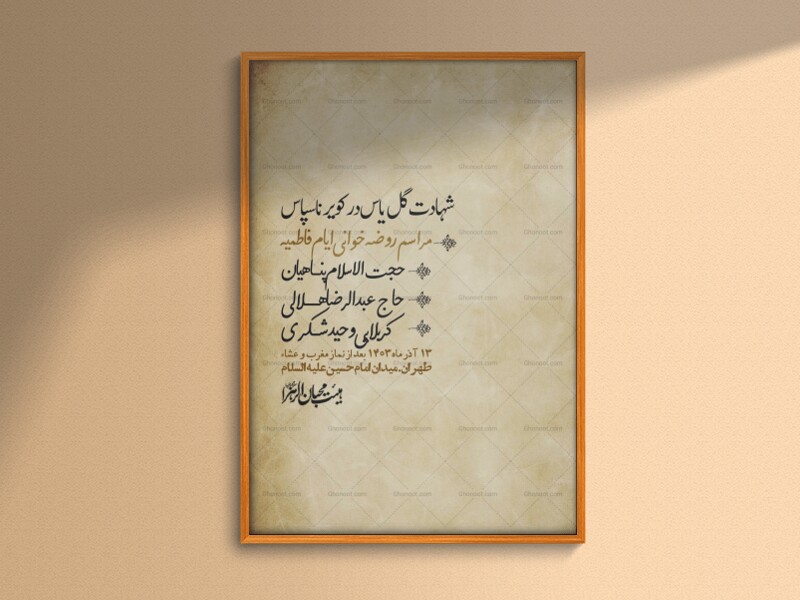 شهادت گل یاس در کویر ناسپاس
مراسم روضه خوانی ایام فاطمیه
حجت الاسلام پناهیان
حاج عبدالرضا هلالی
کربلایی وحید شکری
۱۳ آذر ماه ۱۴۰۳ بعد از نماز مغرب و عشاء
طهران.میدان امام حسین علیه السلام
هیئت محبان الزهرا